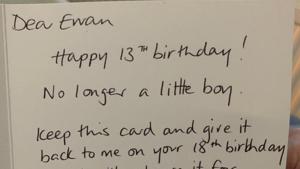 Dear Ewan
Happy 13TH birthday!
No longer a little boy.
Keep this card and give it
back to me on your 18th birthday
it for